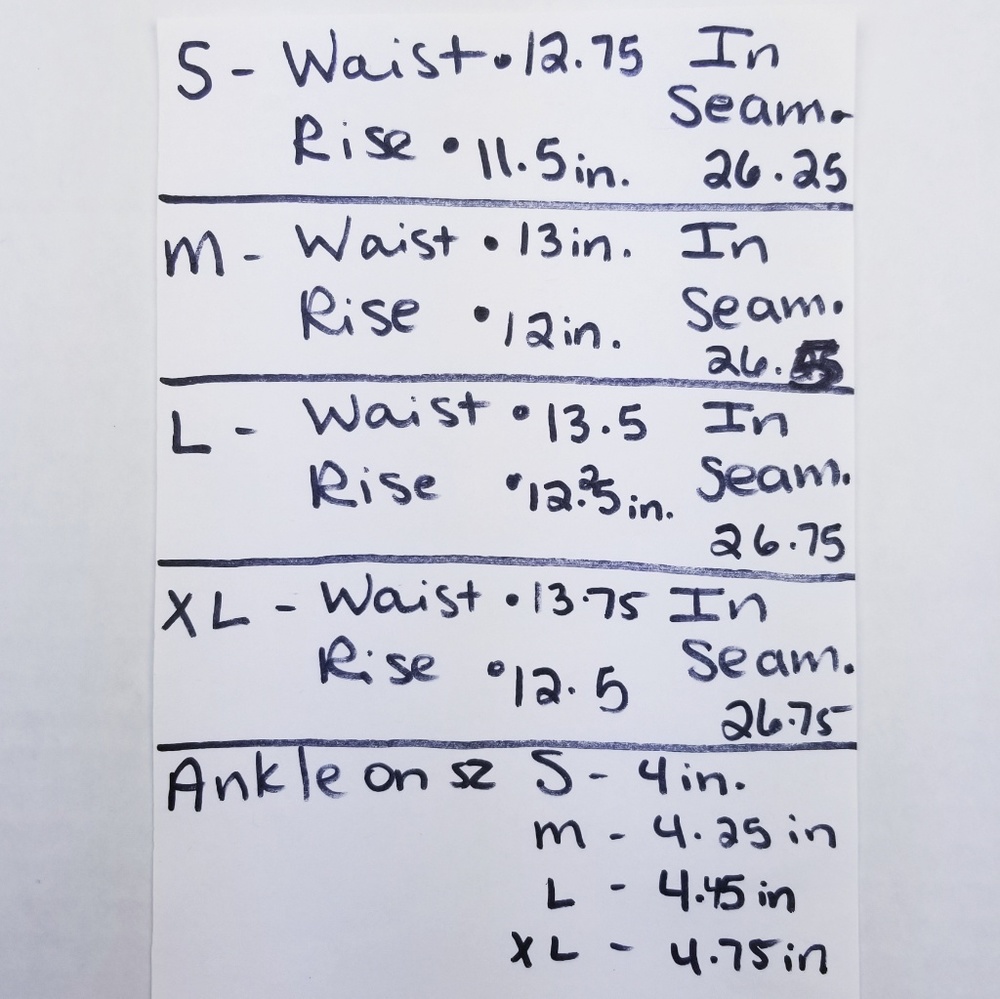 S - Waist • 12.75 In
Seam.
Rise • 11.5 in. 26.25
M - Waist • 13 in. In
Rise • 12 in. Seam.
26.
L - Waist • 13.5 In
Rise • 12.25 in. Seam.
26.75
XL - Waist • 13.75 In
Rise • 12.5 Seam.
26.75
Ankle on SZ S - 4 in.
M - 4.25 in
L - 4.45 in
XL - 4.75 in